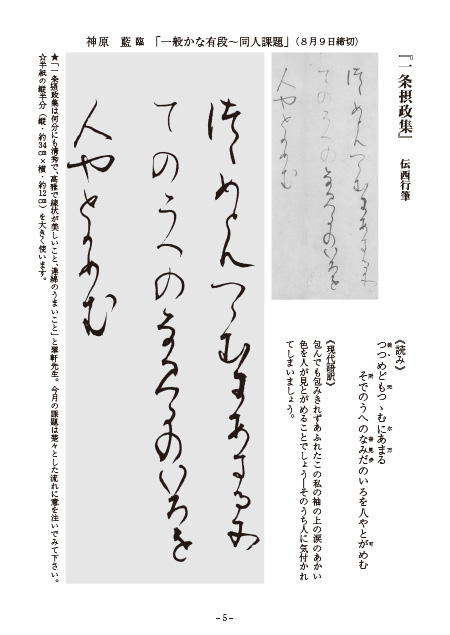 神原 藍 臨 「一般かな有段~同人課題」(8月9日締切)
『一条摂政集』 伝西行筆
《読み》
つつめどもつゝむにあまる
そでのうへのなみだのいろを人やとがめむ
《現代語訳》
包んでも包みきれずあふれたこの私の袖の上の涙のあかい
色を人が見とがめることでしょう―そのうち人に気付かれ
てしまいましょう。
★「一条摂政集は何分にも清秀で、高雅で線状が美しいこと、連綿のうまいこと」と翠軒先生。今月の課題は楚々とした流れに意を注いでみて下さい。
☆半紙の縦半分(縦・約34㎝×横・約12㎝)を大きく使います。
- 5 -